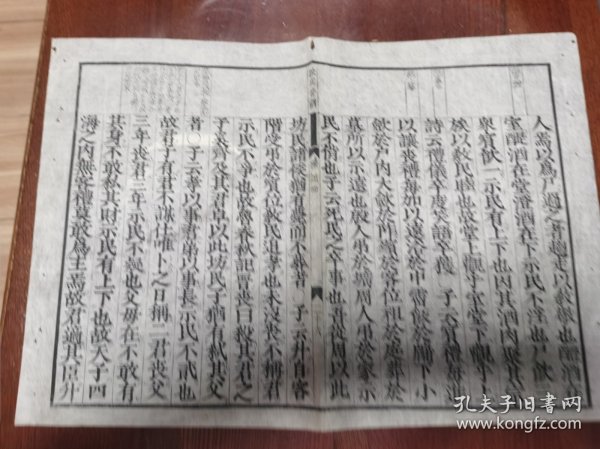 人焉以爲尸過之者趨走以教敬也醴酒在
室醍酒在堂澄酒在下示民不淫也尸飲三
衆賓飲一示民有上下也因其酒肉聚其宗
族以教民睦也故堂上觀乎室堂下觀乎上
詩云禮儀卒度笑語卒獲 子云賓禮每進
以讓喪禮每加以遠浴於中霤飯於牖下小
斂於户內大斂於阼殯於客位祖於庭葬於
墓所以示遠也殷人弔於壙周人弔於家示
民不偝也子云死民之卒事也吾從周以此
坊民諸侯猶有薨而不葬者 子云升自客
階受弔於賓位教民追孝也未没喪不稱君
示民不爭也故魯春秋記晉喪曰殺其君之
子奚齊及其君卓以此坊民子猶有弒其父
者 子云孝以事君弟以事長示民不貳也
故君子有君不謀仕唯卜之日稱二君喪父
三年喪君三年示民不疑也父母在不敢有
其身不敢私其財示民有上下也故天子四
海之內無客禮莫敢爲主焉故君適其臣升
孔夫子旧书网
www.kongfz.com